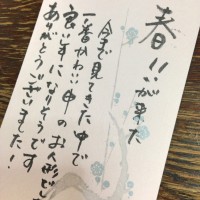 春!!が来た
今まで見てきた中で
一番かわいい のお人形
になりそうです
ありがとうございました!